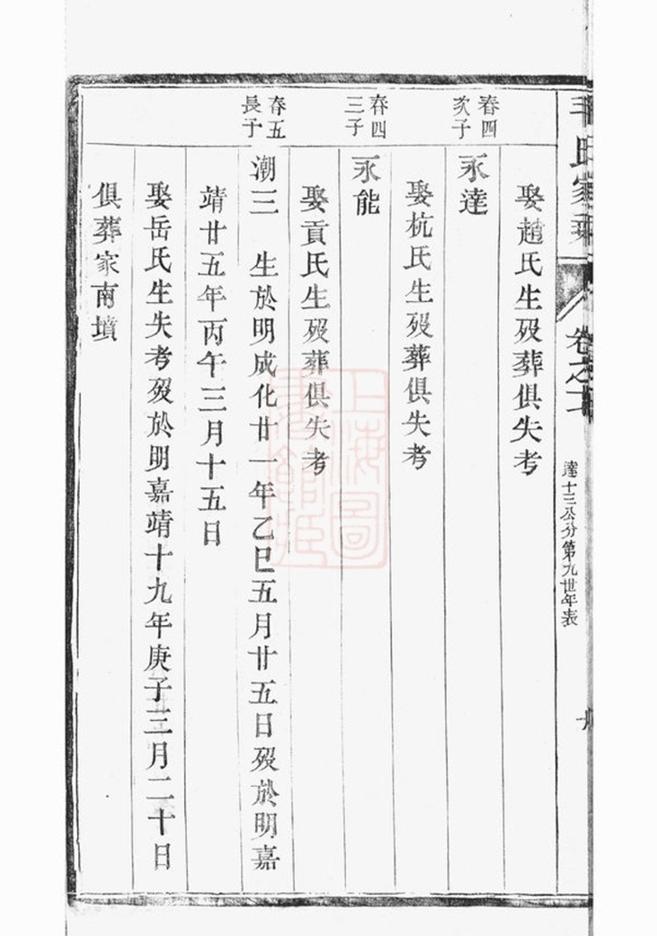 氏家乘
卷之
達十三公分第九世年表
娶趙氏生歿葬俱失考
春四
次子
永達
娶杭氏生歿葬俱失考
春四
三子
永能
娶貢氏生歿葬俱失考
春五
長子
潮三 生於明成化廿一年乙巳五月廿五日歿於明嘉
靖廿五年丙午三月十五日
娶岳氏生失考歿於明嘉靖十九年庚子三月二十日
俱葬家南墳
上海圖